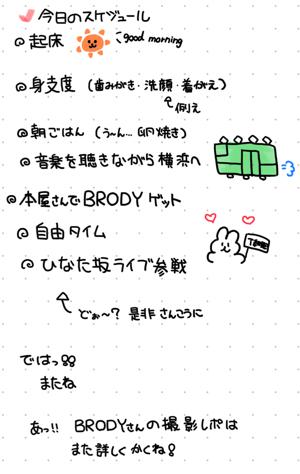 今日のスケジュール
起床 good morning
身支度 (歯みがき・洗顔・着がえ)
例え
朝ごはん (う〜ん… 卵焼き)
音楽を聴きながら横浜へ
本屋さんでBRODYゲット
自由タイム
ひなた坂ライブ参戦
どぉ〜? 是非 さんこうに
ではっ
またね
あっ!! BRODYさんの撮影レポは
また詳しくかくね